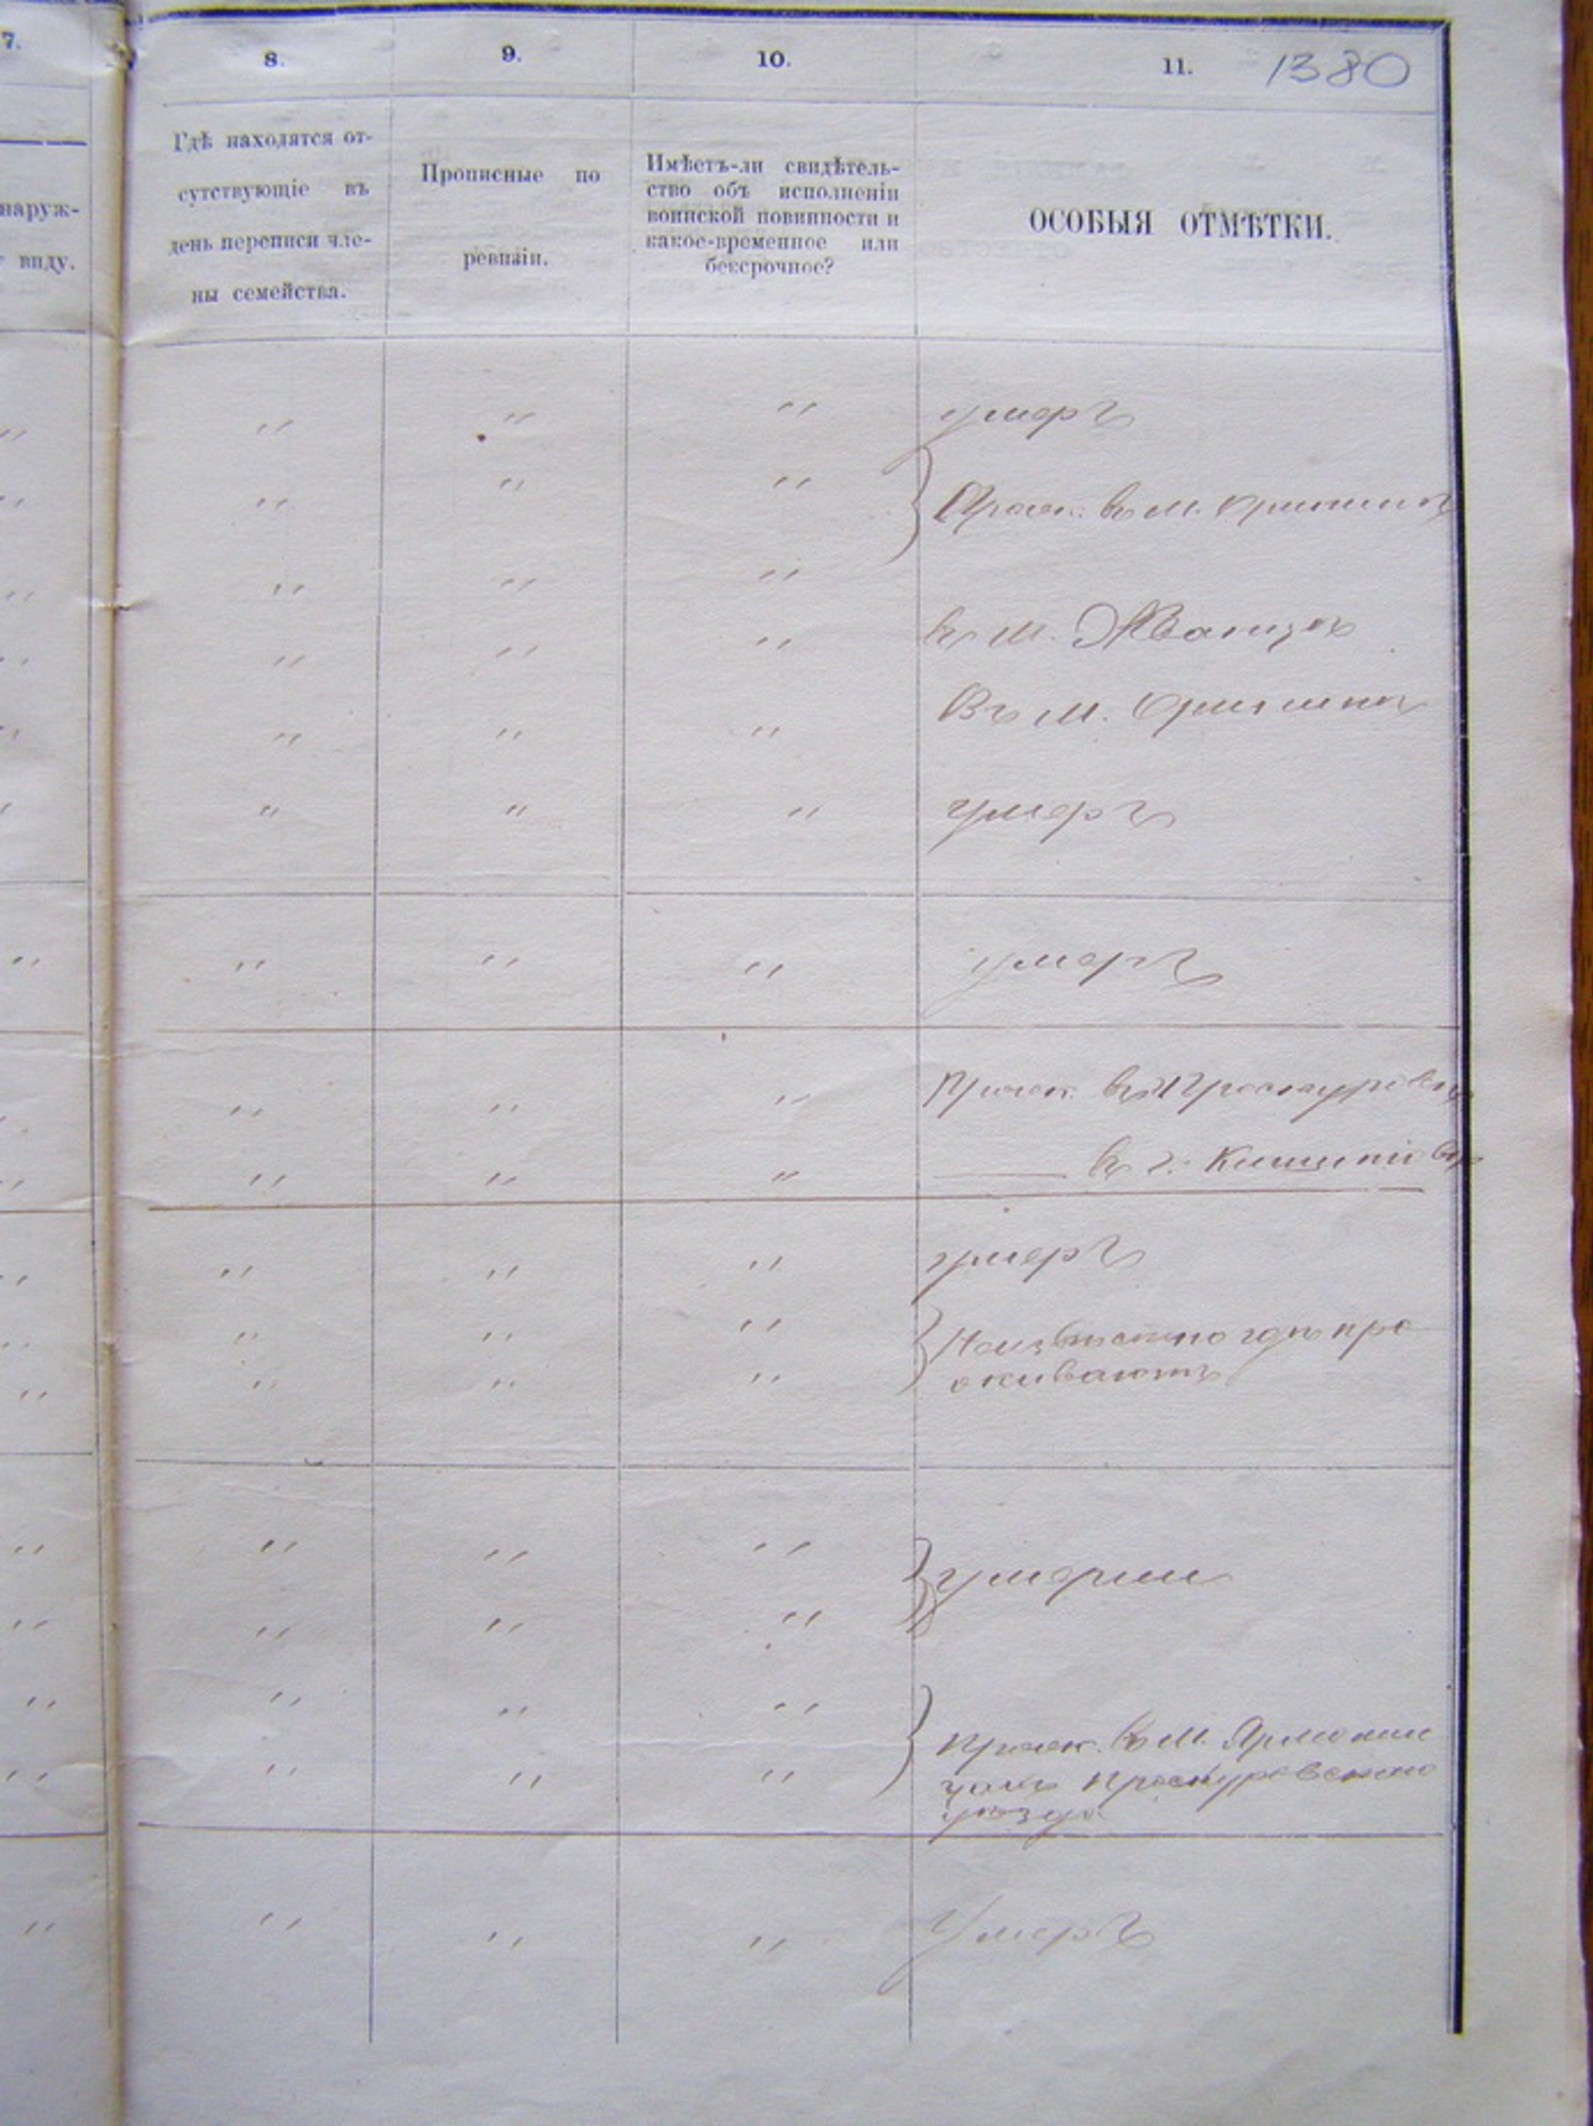 7.
8.
9.
10.
11.
1380
наруж-
виду.
Гдѣ находятся от-
сутствующіе въ
день переписи чле-
ны семейства.
Прописные по
ревизіи.
Имѣетъ-ли свидѣтель-
ство объ исполненіи
воинской повинности и
какое-временное или
бессрочное?
ОСОБЫЯ ОТМѢТКИ.
" " " " умеръ
" " " " Прож. въ м.
" " " "
" " " " въ м. Жванцѣ
" " " " Въ м.
" " " " умеръ
" " " " умеръ
" " " " Прож. въ Проскуровѣ
" " " " — въ г. Кишиневѣ
" " " " умеръ
" " " " Неизвѣстно гдѣ про
" " " " живаютъ
" " " " умерли
" " " "
" " " " прож. въ м. Ярмолин
" " " " цахъ Проскуровскаго
уѣзда
" " " " Умеръ